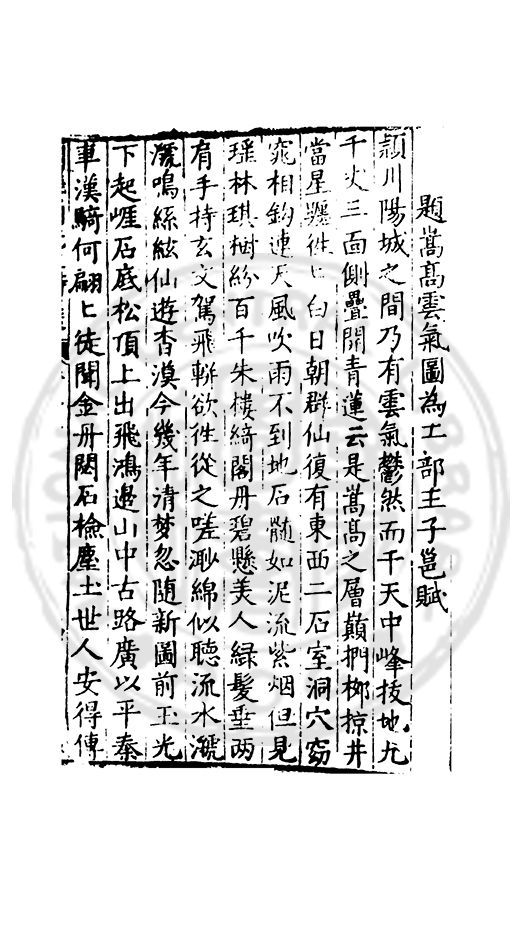 題嵩髙雲氣圖為工部王子邕賦
潁川陽城之間乃有雲氣鬱然而干天中峰拔地九
千丈三面側疊開青蓮云是嵩髙之層巔捫栁掠井
當星躔徃〻白日朝群仙復有東西二石室洞穴窈
窕相鈎連天風吹雨不到地石髓如泥流紫烟但見
瑶林琪樹紛百千朱樓綺閣丹碧懸美人緑髮垂兩
肩手持玄文駕飛軿欲徃從之嗟渺綿似聽流水㶁
㶁鳴絲絃仙遊杳漠今幾年清梦忽随新圖前玉光
下起崕石底松頂上出飛鴻邉山中古路廣以平秦
車漢騎何翩〻徒聞金丹閟石檢塵土世人安得傳